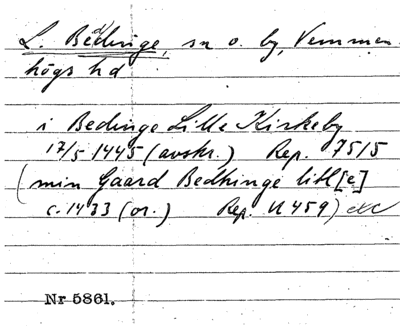 L. Beddinge, sn o. by, Vemmen
högs hd
i Bedinge Lille Kirkeby
17/5 1445 (avskr.) Rep. 7515
(min Gaard Bedhinge litl[e]
c. 1433 (or.) Rep. U 459) etc
Nr 5861.